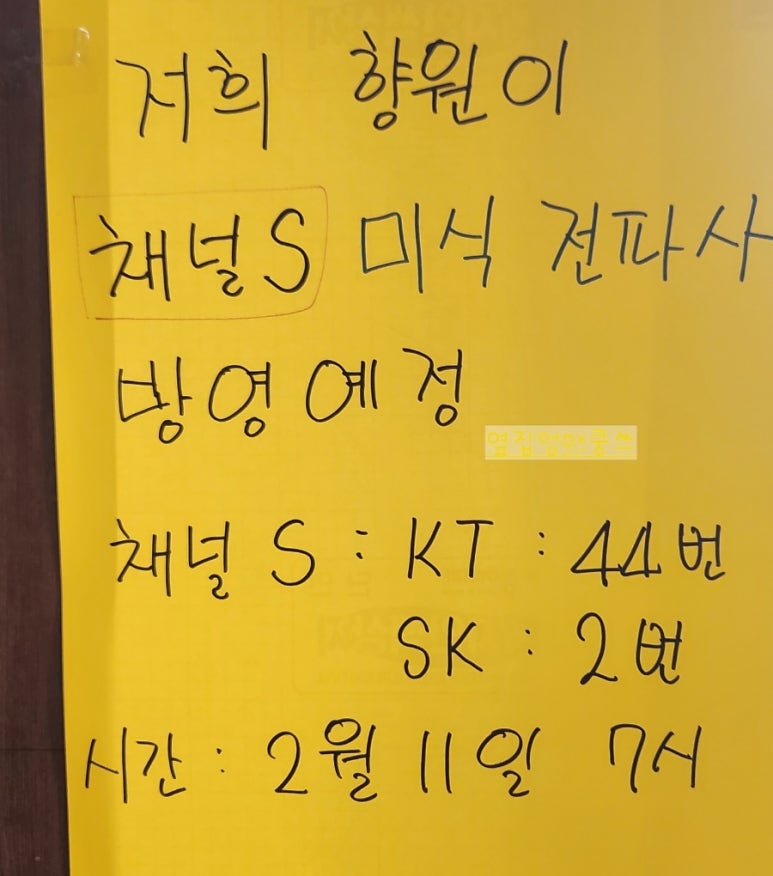 저희 향원이
채널S 미식 전파사
방영예정
옆집언니쿵쓰
채널 S : KT : 44번
SK : 2번
시간 : 2월 11일 7시